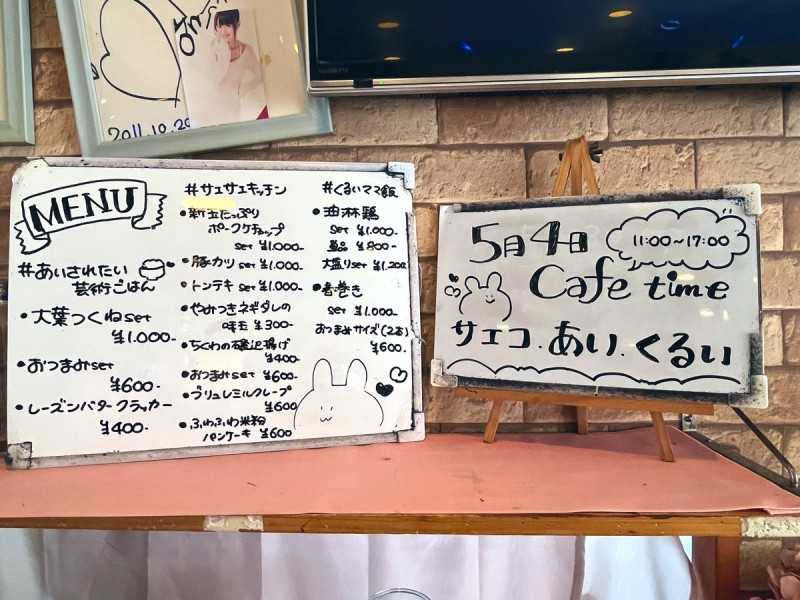 2011.10.20
MENU
#あいされたい
芸術ごはん
・大葉つくねset
¥1.000-
・おつまみset
¥600-
・レーズンバタークラッカー
¥400-
#サエサエキッチン
・新玉たっぷり
ポークケチャップ
set ¥1.000-
・豚カツ set ¥1.000-
・トンテキ set ¥1.000-
・やみつきネギダレの
味玉 ¥300-
・ちくわの磯辺揚げ
¥400-
・おつまみset ¥600-
・ブリュレミルクレープ
¥600
・ふわふわ米粉
パンケーキ ¥600
#くるいママ飯
・油淋鶏
set ¥1.000-
単品 ¥800-
大盛りset ¥1.200
・春巻き
set ¥1.000-
おつまみサイズ(2本)
¥600-
5月4日
11:00~17:00
Cafe time
サエコ.あい.くるい